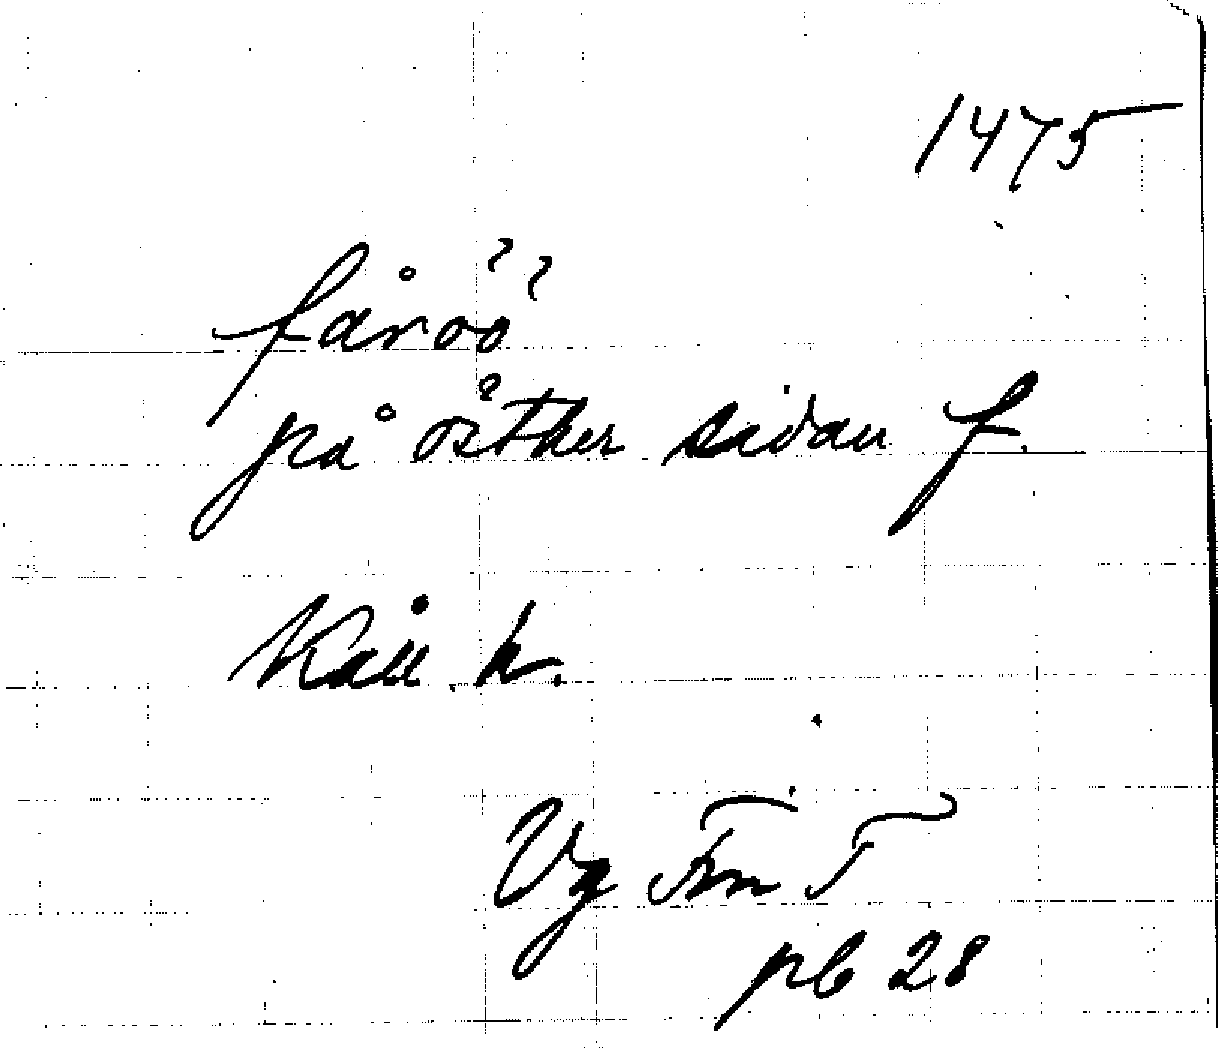 1475
fåroö
på östher sidan f.
Kåll. h.
Vg Fm T
pb 28